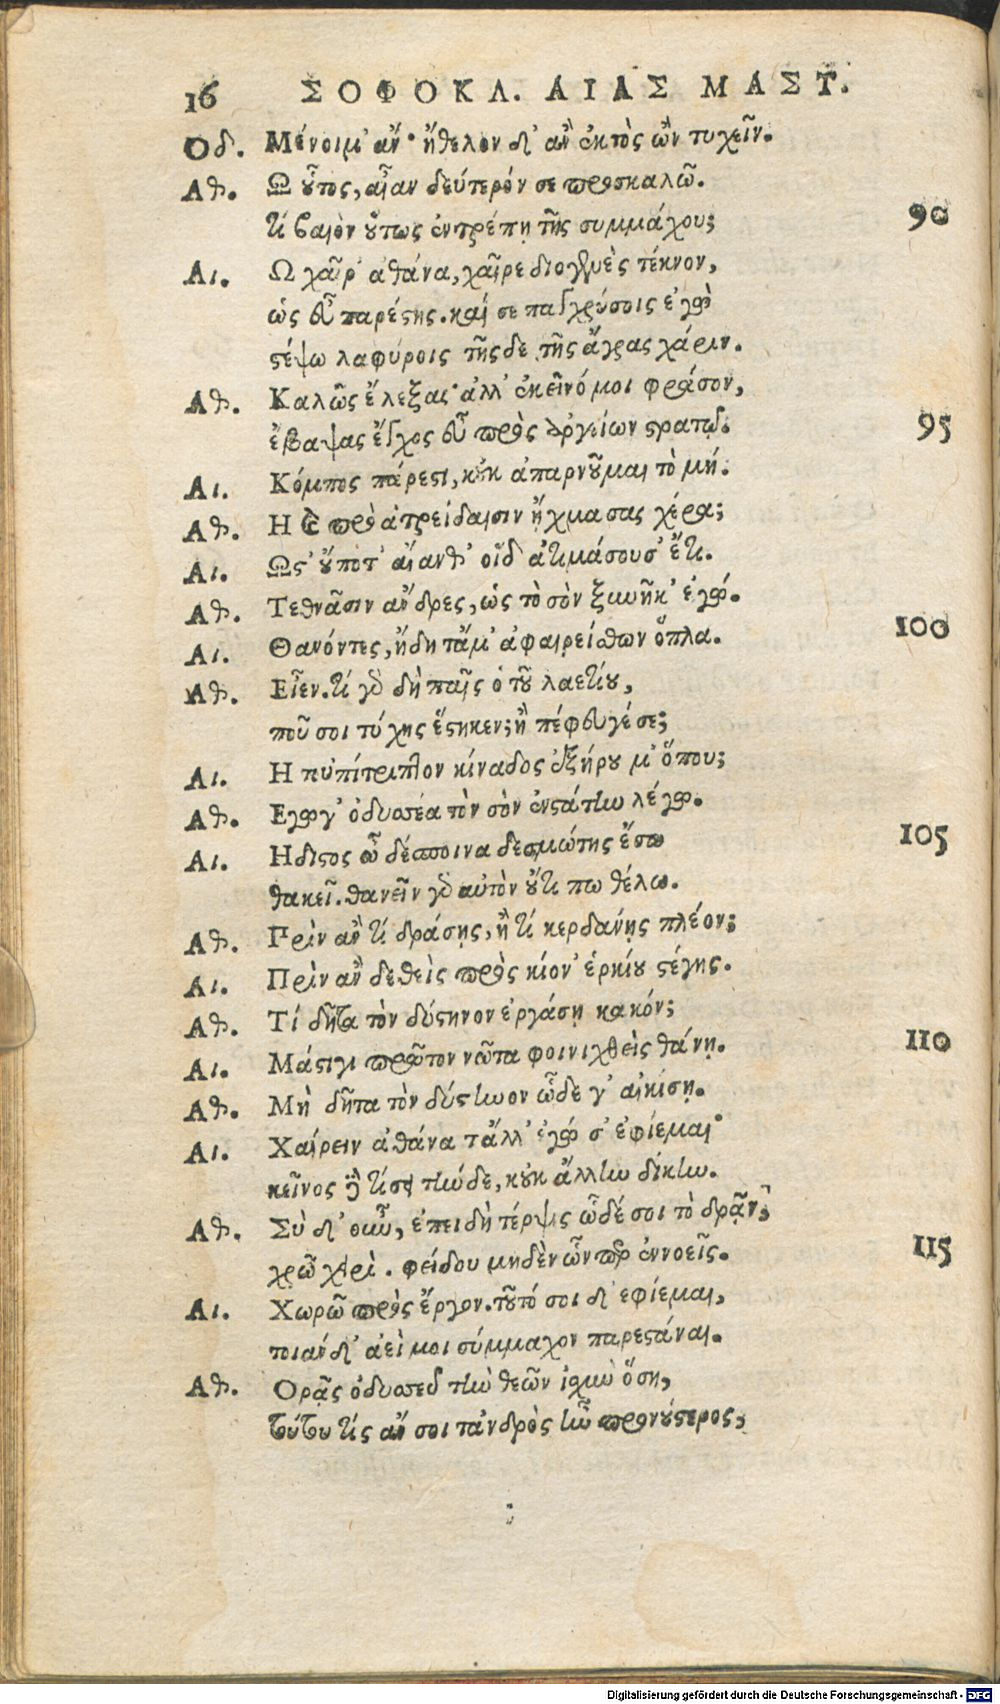 16 ΣΟΦΟΚΛ. ΑΙΑΣ ΜΑΣΤ.
Οδ. Μένοιμ' ἄν· ἤθελον δ' ἂν ἐκτὸς ὢν τυχεῖν.
Αθ. Ω οὗτος, αἶαν δεύτερόν σε προσκαλῶ.
τί βαιὸν οὕτως ἐντρέπῃ τῆς συμμάχου; 90
Αι. Ω χαῖρ' ἀθάνα, χαῖρε διογενὲς τέκνον,
ὡς εὖ παρέστης. καί σε παγχρύσοις ἐγὼ
στέψω λαφύροις τῆςδε τῆς ἄγρας χάριν.
Αθ. Καλῶς ἔλεξας· ἀλλ' ἐκεῖνό μοι φράσον,
ἔβαψας ἔγχος εὖ πρὸς ἀργείων στρατῷ. 95
Αι. Κόμπος πάρεστι, κοὐκ ἀπαρνοῦμαι τὸ μή.
Αθ. Η καὶ πρὸς ἀτρείδαισιν ᾔχμασας χέρα;
Αι. Ωστ' οὔποτ' αἴανθ' οἵδ' ἀτιμάσουσ' ἔτι.
Αθ. Τεθνᾶσιν ἄνδρες, ὡς τὸ σὸν ξυνῆκ' ἐγώ.
Αι. Θανόντες, ἤδη τἄμ' ἀφαιρείσθων ὅπλα. 100
Αθ. Εἶεν. τί γὰρ δὴ παῖς ὁ τοῦ λαετίου,
ποῦ σοι τύχης ἕστηκεν; ἢ πέφευγέ σε;
Αι. Η τοὐπίτριπτον κίναδος ἐξήρου μ' ὅπου;
Αθ. Εγωγ' ὀδυσσέα τὸν σὸν ἐνστάτην λέγω.
Αι. Ηδιστος ὦ δέσποινα δεσμώτης ἔσω 105
θακεῖ. θανεῖν γὰρ αὐτὸν οὔτι πω θέλω.
Αθ. Πρὶν ἂν τί δράσῃς, ἢ τί κερδάνῃς πλέον;
Αι. Πρὶν ἂν δεθεὶς πρὸς κίον' ἑρκίου στέγης.
Αθ. Τί δῆτα τὸν δύστηνον ἐργάσῃ κακόν;
Αι. Μάστιγι πρῶτον νῶτα φοινιχθεὶς θάνῃ. 110
Αθ. Μὴ δῆτα τὸν δύστηνον ὧδέ γ' αἰκίσῃ.
Αι. Χαίρειν ἀθάνα τἄλλ' ἐγώ σ' ἐφίεμαι·
κεῖνος δὲ τίσει τήνδε, κοὐκ ἄλλην δίκην.
Αθ. Σὺ δ' οὖν, ἐπειδὴ τέρψις ὧδέ σοι τὸ δρᾷν,
χρῶ χειρὶ. φείδου μηδὲν ὧνπερ ἐννοεῖς. 115
Αι. Χωρῶ πρὸς ἔργον. τοῦτό σοι δ' ἐφίεμαι,
τοιάνδ' ἀεί μοι σύμμαχον παρεστάναι.
Αθ. Ορᾷς ὀδυσσεῦ τὴν θεῶν ἰσχὺν ὅση,
τούτου τίς ἄν σοι τἀνδρὸς ἢν προνούστερος,
Digitalisierung gefördert durch die Deutsche Forschungsgemeinschaft - DFG